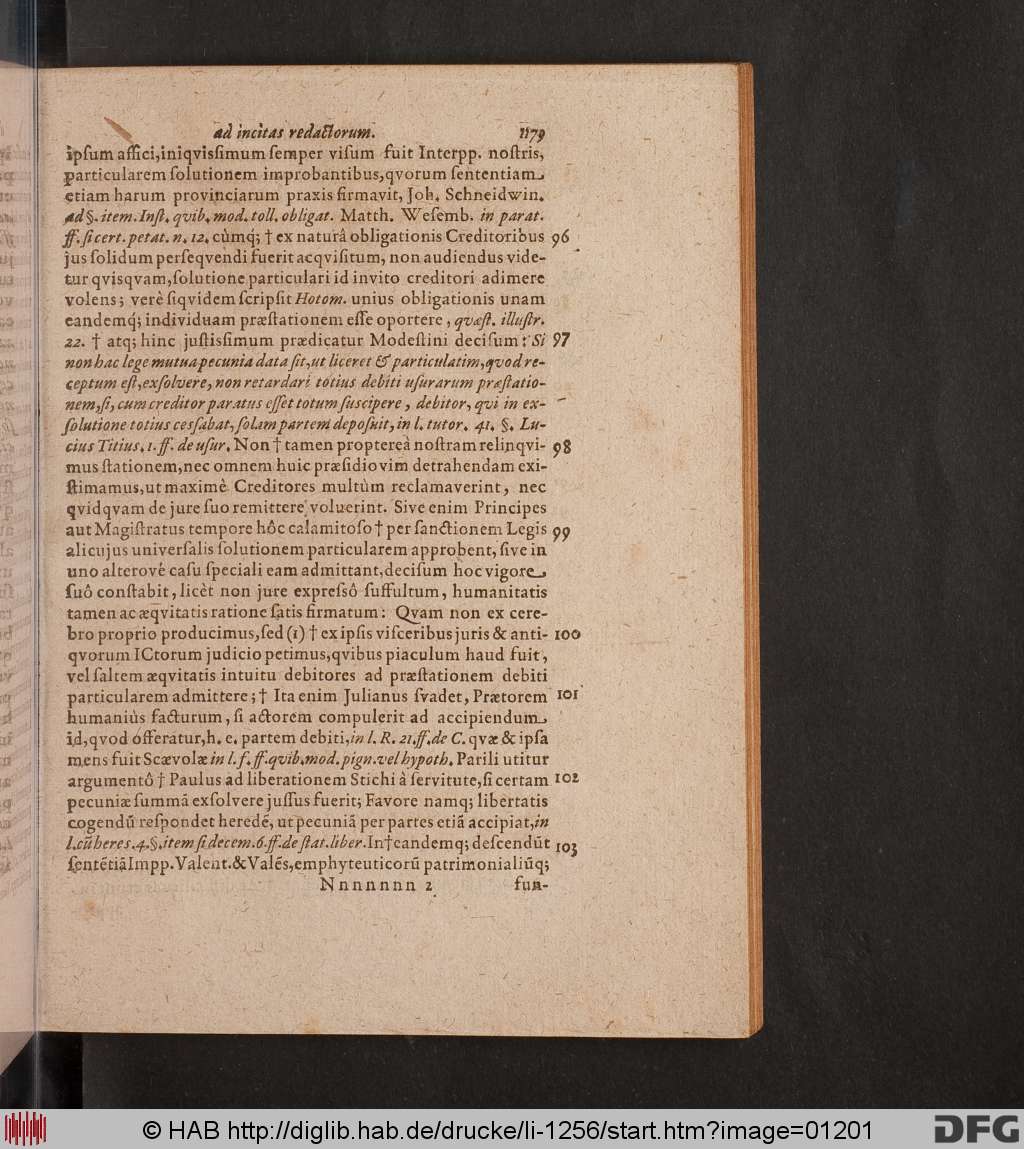 ad incitas redactorum. 1179
ipſum affici, iniqviſſimum ſemper viſum fuit Interpp. noſtris,
particularem ſolutionem improbantibus, qvorum ſententiam
etiam harum provinciarum praxis firmavit, Joh. Schneidwin.
ad §. item. Inſt. qvib. mod. toll. obligat. Matth. Weſemb. in parat.
ff. ſi cert. petat. n. 12. cùmq; † ex naturâ obligationis Creditoribus 96
jus ſolidum perſeqvendi fuerit acqviſitum, non audiendus vide-
tur qvisqvam, ſolutione particulari id invito creditori adimere
volens; verè ſiqvidem ſcripſit Hotom. unius obligationis unam
eandemq́; individuam præſtationem eſſe oportere, qvæſt. illuſtr.
22. † atq; hinc juſtisſimum prædicatur Modeſtini deciſum: Si 97
non hac lege mutua pecunia data ſit, ut liceret & particulatim, qvod re-
ceptum eſt, exſolvere, non retardari totius debiti uſurarum præſtatio-
nem, ſi, cum creditor paratus eſſet totum ſuscipere, debitor, qvi in ex-
ſolutione totius cesſabat, ſolam partem depoſuit, in l. tutor. 41. §. Lu-
cius Titius. 1. ff. de uſur. Non † tamen proptereà noſtram relinqvi- 98
mus ſtationem, nec omnem huic præſidio vim detrahendam exi-
ſtimamus, ut maximè Creditores multùm reclamaverint, nec
qvidqvam de jure ſuo remittere voluerint. Sive enim Principes
aut Magiſtratus tempore hôc calamitoſo † per ſanctionem Legis 99
alicujus univerſalis ſolutionem particularem approbent, ſive in
uno alterové caſu ſpeciali eam admittant, deciſum hoc vigore
ſuô conſtabit, licèt non jure expreſsô ſuffultum, humanitatis
tamen ac æqvitatis ratione ſatis firmatum: Qvam non ex cere-
bro proprio producimus, ſed (1) † ex ipſis viſceribus juris & anti- 100
qvorum ICtorum judicio petimus, qvibus piaculum haud fuit,
vel ſaltem æqvitatis intuitu debitores ad præſtationem debiti
particularem admittere; † Ita enim Julianus ſvadet, Prætorem 101
humaniùs facturum, ſi actorem compulerit ad accipiendum
id, qvod offeratur, h. e. partem debiti, in l. R. 21. ff. de C. qvæ & ipſa
mens fuit Scævolæ in l. f. ff. qvib. mod. pign. vel hypoth. Parili utitur
argumentô † Paulus ad liberationem Stichi à ſervitute, ſi certam 102
pecuniæ ſummã exſolvere juſſus fuerit; Favore namq; libertatis
cogendũ reſpondet heredẽ, ut pecuniã per partes etiã accipiat, in
l. cũ heres. 4. §. item ſi decem. 6. ff. de ſtat. liber. In † eandemq; deſcendũt 103
ſentẽtiã Impp. Valent. & Valẽs, emphyteuticorũ patrimonialiũq;
Nnnnnnn 2 fun-
© HAB http://diglib.hab.de/drucke/li-1256/start.htm?image=01201
DFG